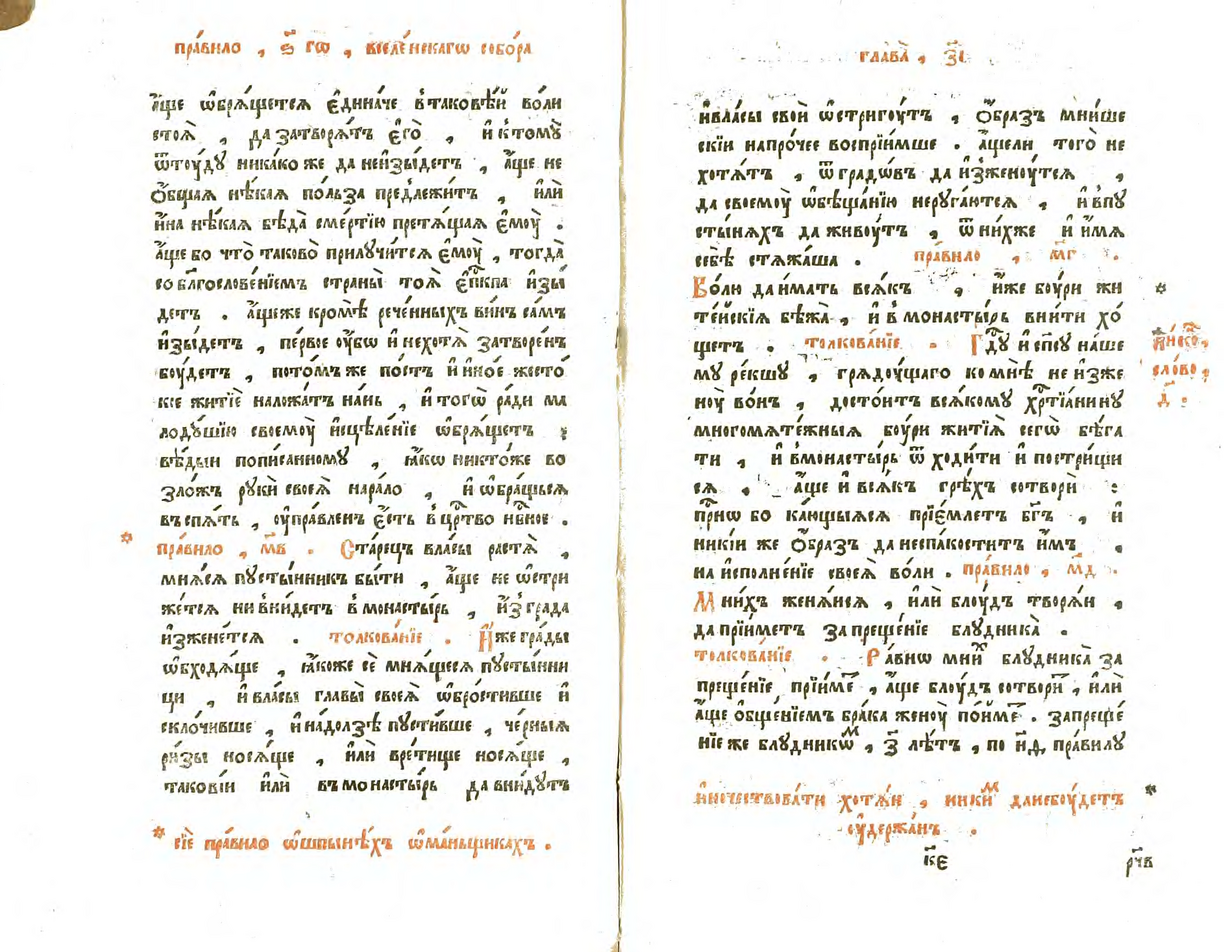 пра́вило , ѕ҃ гѡ , вселе́нскагѡ собо́ра
а҆́ще ѡ҆бря́щется є҆ди́наче в҆таковѣ́й во́ли
стоя̀ , да затворя́тъ є҆го̀ , и҆ к҆тому̀
ѿтꙋ́дꙋ ника́ко же да неи҆зы́детъ , а҆́ще не
ѻ҆́бщая нѣ́кая по́льза предлежи́тъ , и҆лѝ
и҆́на нѣ́кая бѣда̀ сме́ртїю претя́щая є҆моу̀ .
а҆́ще бо что̀ таково̀ прилꙋчи́тся є҆моу̀ , тогда̀
со бл҃гослове́нїемъ страны̀ тоя̀ є҆пⷭ҇кпа и҆зы́
детъ . а҆́щеже кромѣ̀ рече́нныхъ ви́нъ са́мъ
и҆зы́детъ , пе́рвое оу҆́бѡ и҆ нехотя̀ затворе́нъ
боу́детъ , пото́мъ же по́стъ и҆ и҆но́е жесто́
кїе житїѐ наложа́тъ на́нь , и҆ тогѡ̀ ра́ди ма
лодꙋ́шїю своемоу̀ и҆сцѣле́нїе ѡ҆бря́щетъ ;
вѣ́дыи пописанномꙋ , ꙗ҆́кѡ никто́же во
зло́жъ рꙋ́ки своея̀ нара́ло , и҆ ѡ҆бра́щься
въспя́ть , оу҆пра́вленъ є҆́сть в҆ црⷭ҇тво нбⷭ҇ное .
пра́вило , м҃в . Ста́рецъ власы̀ растя̀ ,
мня́ся пꙋсты́нникъ бы́ти , а҆́ще не ѡ҆стри
же́тся ни вни́детъ в҆ монасты́рь , и҆з̾ гра́да
и҆зжене́тся . толкова́нїе . И҆́же гра́ды
ѡ҆бходя́ще , ꙗ҆́коже сѐ мня́щеся пꙋсты́нни
цы , и҆ власы̀ главы̀ своея̀ ѡ҆бро́стивше и҆
склочи́вше , и҆ надо́лзѣ пꙋсти́вше , че́рныя
ри́зы нося́ще , и҆лѝ вре́тище нося́ще ,
таковы́и и҆лѝ въмонасты́рь да вни́дꙋтъ
сїѐ пра́вило ѡ҆шпынѣ́хъ ѡ҆ма́ньщикахъ .
глава̀ , з҃і
и҆власы̀ своѝ ѡ҆стригоу́тъ , ѻ҆́бразъ мни́ше
скїи напро́чее воспрїи́мше . а҆́щели того̀ не
хотя́тъ , ѿ градѡ́въ да и҆зженоу́тся ,
да своемоу̀ ѡ҆бѣща́нїю нерꙋга́ются , и҆ впꙋ
сты́няхъ да живоу́тъ , ѿ ни́хже и҆ и҆́мя
себѣ̀ стяжа́ша . пра́вило , м҃г .
Во́лю да и́мать вся́къ , и҆́же боу́ри жи
те́йскїя бѣжа̀ , и҆ в҆ монасты́рь вни́ти хо́
щетъ . толкова́нїе . Гдⷭ҇ꙋ и҆ сп҃сꙋ на́ше
мꙋ ре́кшꙋ , грядоу́щаго ко мнѣ̀ не и҆зже
ноу̀ во́нъ , досто́итъ вся́комꙋ хрⷭ҇тїа́нинꙋ
многомяте́жныя боу́ри житїя̀ сегѡ̀ бѣ́га
ти , и҆ вмонасты́рь ѿ ходи́ти и҆ постри́щи
ся . а҆́ще и҆ вся́къ грѣ́хъ сотворѝ :
прⷭ҇нѡ бо ка́ющыяся прїе́млетъ бг҃ъ , и҆
никі́и же ѻ҆́бразъ да неспа́коститъ и҆̀мъ ,
на и҆сполне́нїе своея̀ во́ли . пра́вило , м҃д .
Мни́хъ женя́ися , и҆лѝ блоу́дъ творя́и ,
да прїи́метъ запреще́нїе блꙋдника̀ .
толкова́нїе . Ра́внѡ мни́х блꙋдника̀ за
преще́нїе прїи́ме , а҆́ще блоу́дъ сотвори́ , и҆лѝ
а҆́ще ѻ҆бще́нїемъ бра́ка женоу̀ по́име . запреще́
нїе же блꙋдникѡ́м , з҃ лѣ́тъ , по н҃ѳ , пра́вилꙋ
и҆́ноческо,
сло́во,
д҃ :
и҆́ночествовати хотя́и , ники́м данебоу́детъ
оу҆держа́нъ .
к҃є
рч҃в